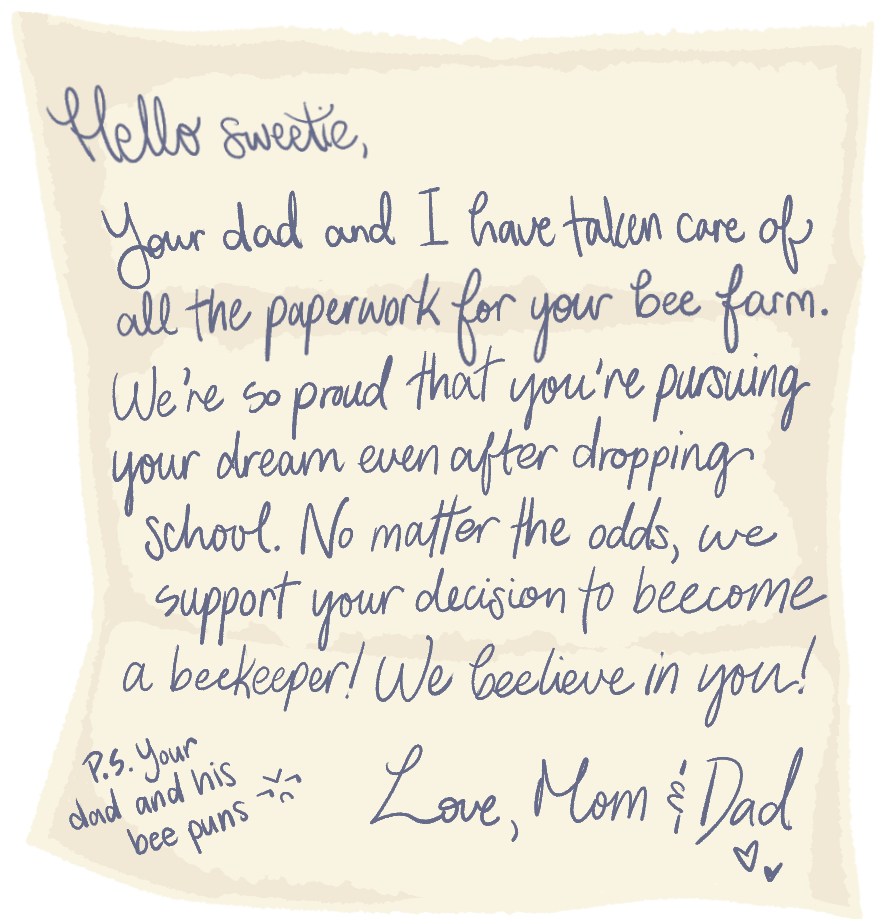 Hello sweetie,
Your dad and I have taken care of
all the paperwork for your bee farm.
We're so proud that you're pursuing
your dream even after dropping
school. No matter the odds, we
support your decision to beecome
a beekeeper! We beelieve in you!
Love, Mom & Dad
P.S. Your
dad and his
bee puns